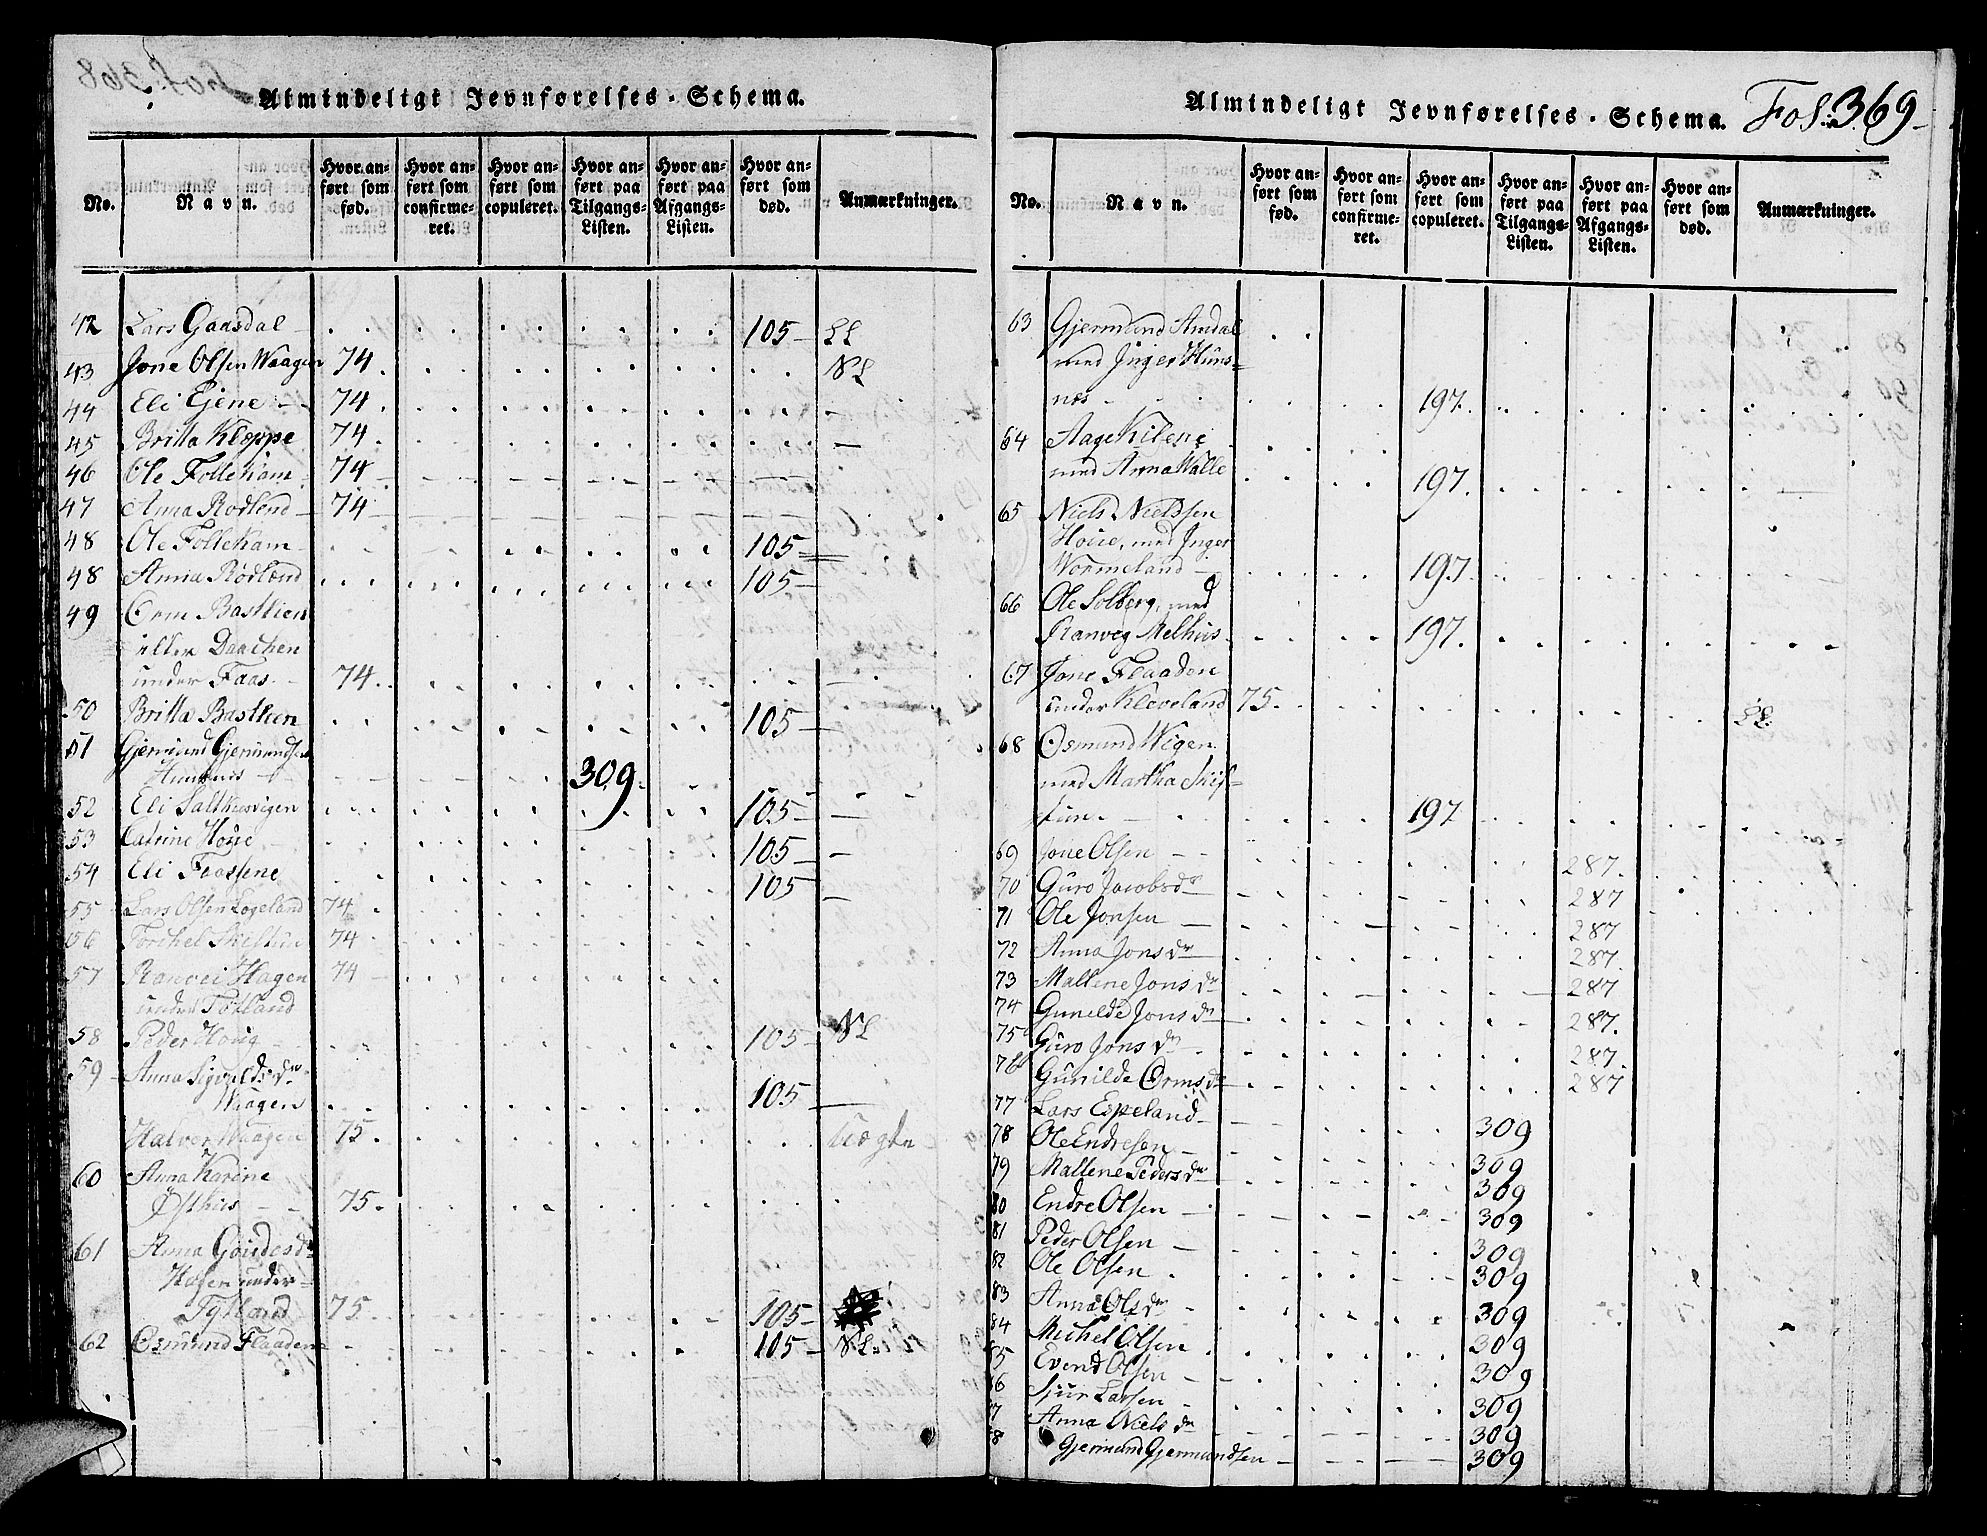 Almindeligt Jevnførelses-Schema.
No. Navn. Hvor anført som fød. Hvor anført som confirmeret. Hvor anført som copuleret. Hvor anført paa Tilgangs-Listen. Hvor anført paa Afgangs-Listen. Hvor anført som død. Anmærkninger.
42 Lars Gaasdal 105 LL
43 Jone Olsen Waagen 74. NL
44 Eli Ejene 74.
45 Britta Kleppe 74.
46 Ole Folleham 74
47 Anna Rodlend 74
48 Ole Folleham 105
48 Anna Rødlend 105
49 Orm Bastlien
eller Daachen
under Faas 74.
50 Britta Bastlien 105
51 Gjermund Gjermundsen
309.
52 Eli Salthusvigen 105
53 Catrine Houe 105
54 Eli 105
55 Lars Olsen Løgeland 74
56 Torchel Skiftun 74
57 Ranvei Hagen 74
under Totland
58 Peder Houg 105 NL
59 Anna Sigvalds dr
Waagen 105
Halvor Waagen 75.
60 Anna Karine
Østhus 75.
61 Anna Goudesdr
Hagen under
Tytland 75. 105
62 Osmund Flaaden 105 NL.
Almindeligt Jevnførelses-Schema. Fol: 369
No. Navn. Hvor anført som fød. Hvor anført som confirmeret. Hvor anført som copuleret. Hvor anført paa Tilgangs-Listen. Hvor anført paa Afgangs-Listen. Hvor anført som død. Anmærkninger.
63 Gjermund Amdal
med Inger Huns-
næs 197.
64 Aage Kilene
med Anna Walle 197.
65 Niels Nielssen
Houe, med Inger
Wormeland 197.
66 Ole Solberg, med
Ranveg Melhus 197.
67 Jone Flaaden
under Kleveland 75. LL.
68 Osmund Wigen
med Martha Skif-
tun 197
69 Jone Olsen 287.
70 Guro Jacobsdr 287
71 Ole Jonsen 287
72 Anna Jons dr 287.
73 Mallene Jons dr 287
74 Gunilde Jons dr 287.
75 Guro Jons dr 287.
76 Gunilde Orms dr 287
77 Lars Espeland 309
78 Ole Endresen 309
79 Mallene Peders dr 309
80 Endre Olsen 309
81 Peder Olsen 309
82 Ole Olsen 309
83 Anna Ols dr 309
84 Michel Olsen 309
85 Evend Olsen 309
86 Sjur Larsen 309
87 Anna Niels dr 309
88 Gjermund Gjermundsen 309